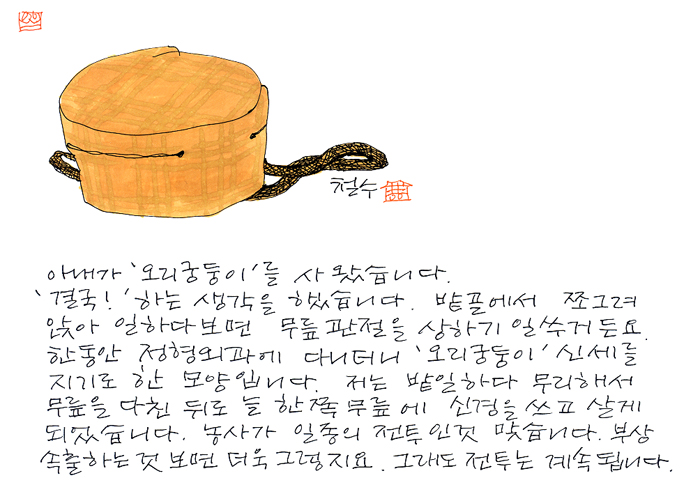 철수
아내가 '오리궁둥이'를 사 왔습니다.
'결국!' 하는 생각을 했습니다. 밭풀에서 쪼그려
앉아 일하다보면 무릎관절을 상하기 일쑤거든요.
한동안 정형외과에 다니더니 '오리궁둥이' 신세를
지기로 한 모양입니다. 저는 밭일하다 무리해서
무릎을 다친 뒤로 늘 한쪽 무릎에 신경을 쓰고 살게
되었습니다. 농사가 일종의 전투인것 맞습니다. 부상
속출하는것 보면 더욱 그렇지요. 그래도 전투는 계속됩니다.